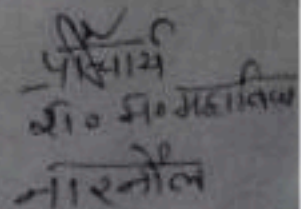 प्राचार्य
रा० म० महाविद्या
नारनौल